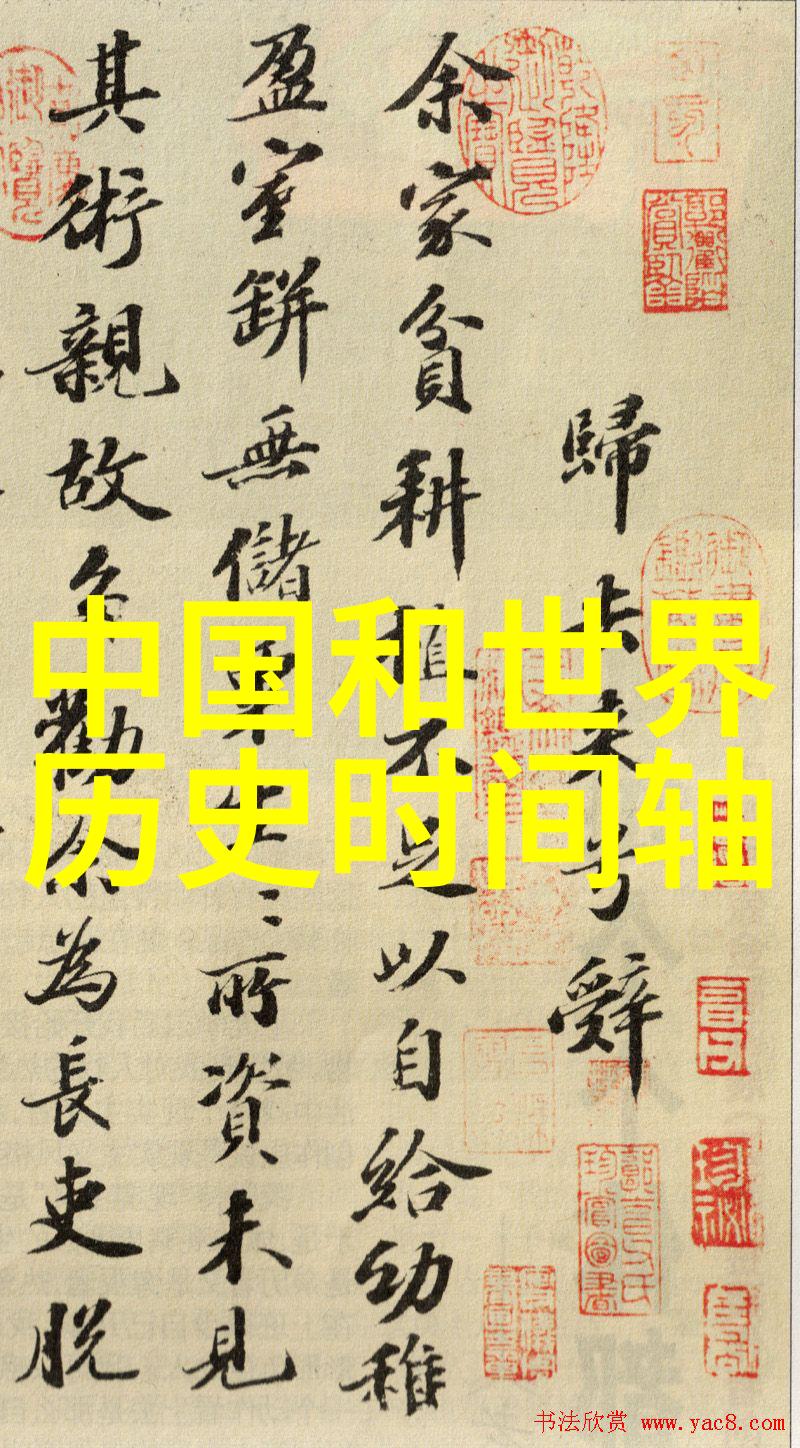 中国和世界
历史时间轴
歸去来兮辭
余家貧耕植不足以自給幼稚
盈室缾無儲粟生〻所資未見
其術親故多勸余為長吏脱
书法欣赏 www.yac8.com